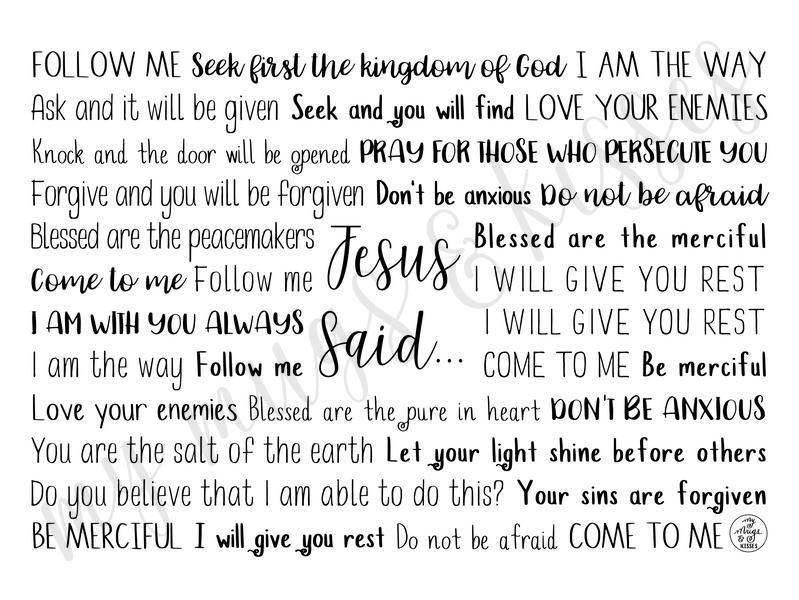 FOLLOW ME Seek first the kingdom of God I AM THE WAY
Ask and it will be given Seek and you will find LOVE YOUR ENEMIES
Knock and the door will be opened PRAY FOR THOSE WHO PERSECUTE YOU
Forgive and you will be forgiven Don't be anxious Do not be afraid
Blessed are the peacemakers
Blessed are the merciful
Come to me Follow me
Jesus
I WILL GIVE YOU REST
I AM WITH YOU ALWAYS
I WILL GIVE YOU REST
I am the way Follow me
Said...
COME TO ME Be merciful
Love your enemies Blessed are the pure in heart DON'T BE ANXIOUS
You are the salt of the earth Let your light shine before others
Do you believe that I am able to do this? Your sins are forgiven
BE MERCIFUL I will give you rest Do not be afraid COME TO ME
my
Mugs
&
KISSES
my mugs & kisses